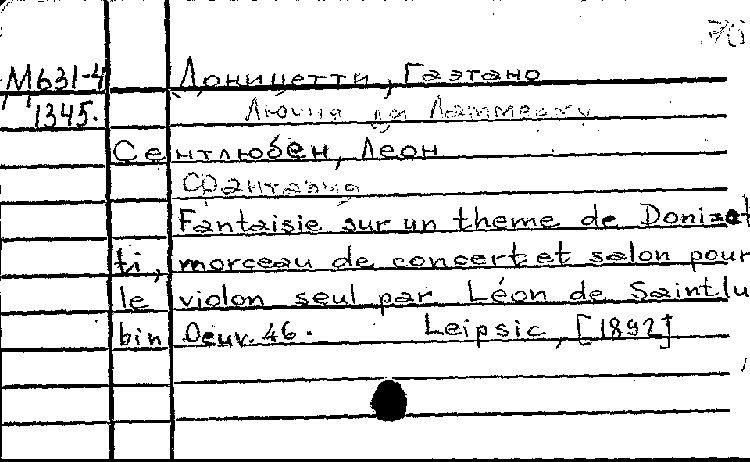 70
М631-4 Доницетти, Гаэтано
1345. Лючия ди Ламмермур
Сентлюбен, Леон
Фантазия
Fantaisie sur un theme de Donizet
ti, morceau de concert et salon pour
le violon seul par Léon de Saint.lu
bin Oeuv. 46. Leipsic, [1892]